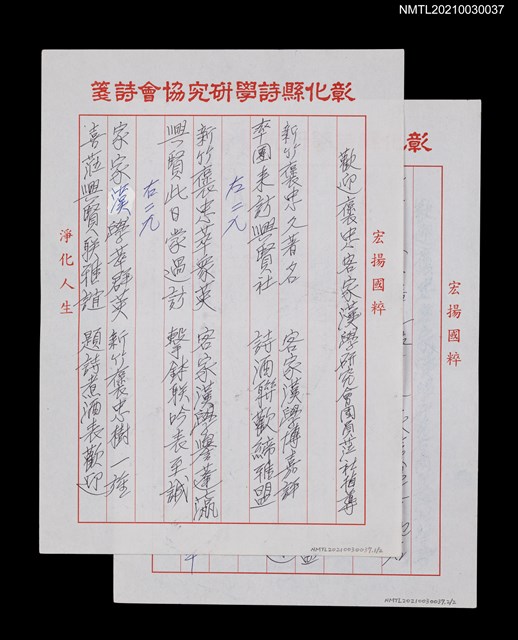 NMTL20210030037
彰化縣詩學研究協會詩箋
宏揚國粹
歡迎褒忠客家漢學研究會團員蒞社指導
新竹褒忠久著名 客家漢學博嘉評
率團來訪興賢社 詩酒聯歡締雅盟
右二九
新竹褒忠萃眾英 客家漢學譽蓬瀛
興賢此日蒙過訪 擊鉢聯吟表至誠
右二九
家家漢學萃群英 新竹褒忠樹一旌
喜蒞興賢敦雅誼 題詩煮酒表歡迎
淨化人生
NMTL20210030037.1/2
彰
宏揚國粹
NMTL20210030037.2/2